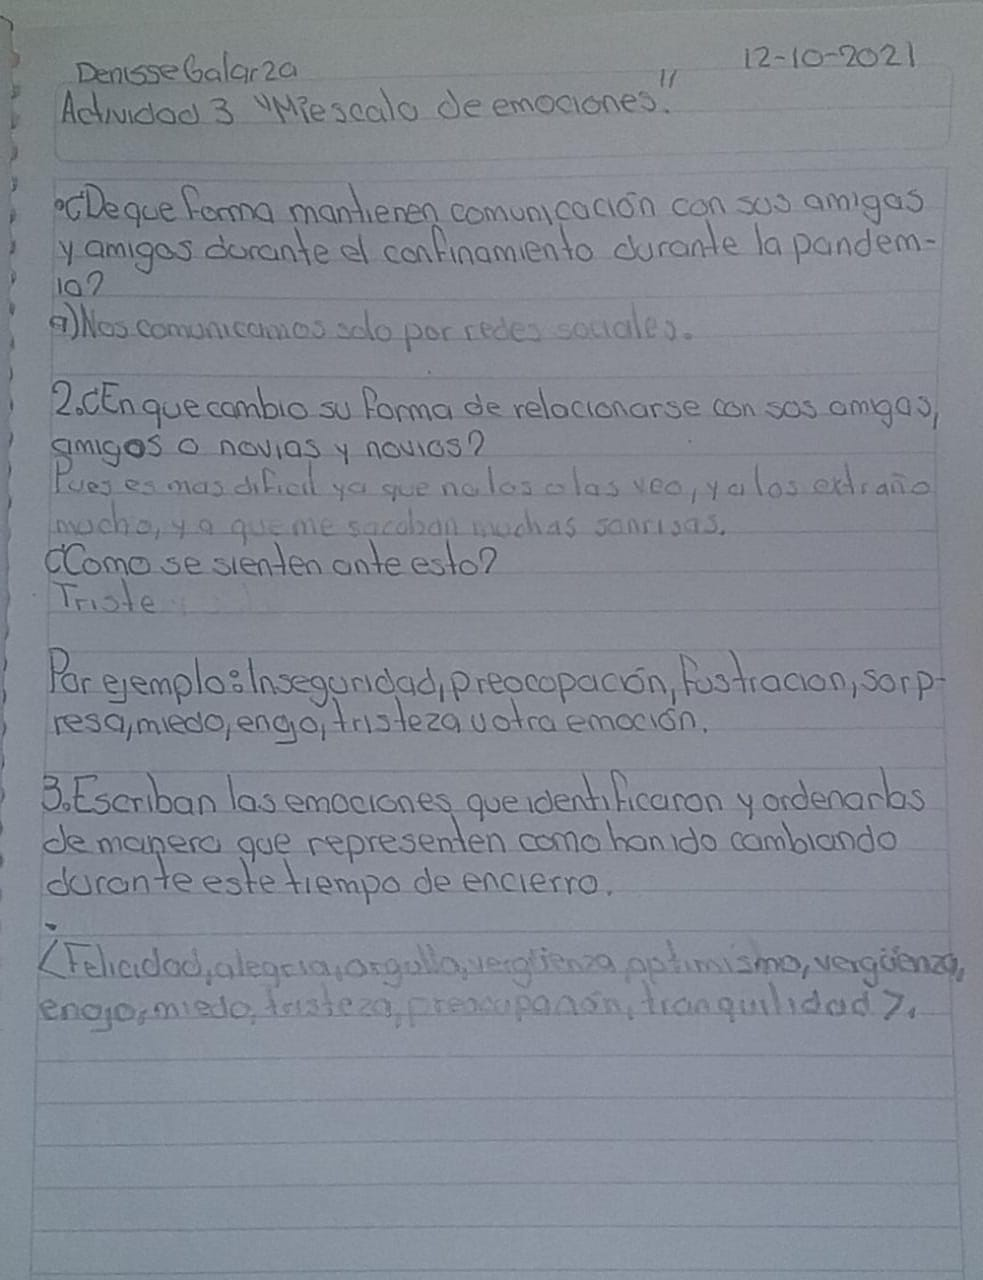 Denisse Galarza 12-10-2021
Actividad 3 "Mi escala de emociones."
¿De que forma mantienen comunicación con sus amigas
y amigos durante el confinamiento durante la pandem-
ia?
a) Nos comunicamos solo por redes sociales.
2. ¿En que cambio su forma de relacionarse con sus amigas,
amigos o novias y novios?
Pues es mas dificil ya que no los o las veo, y a los extraño
mucho, ya que me sacaban muchas sonrisas.
¿Como se sienten ante esto?
Triste
Por ejemplo: Inseguridad, preocopación, fustracion, sorp-
resa, miedo, enojo, tristeza u otra emoción.
3. Escriban las emociones que identificaron y ordenarlas
de manera que representen como han ido cambiando
durante este tiempo de encierro.
<Felicidad, alegria, orgullo, vergüenza, optimismo, vergüenza,
enojo, miedo, tristeza, preocupación, tranquilidad>.